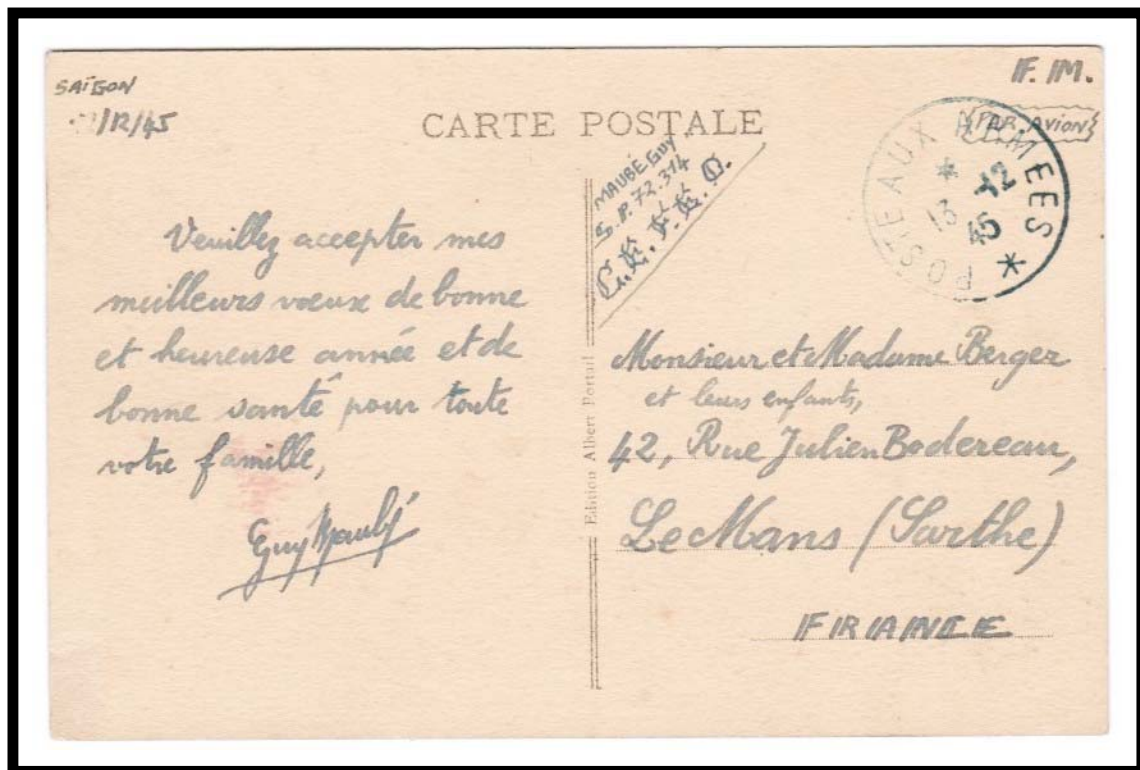 SAÏGON
/12/45
F. M.
PAR AVION
CARTE POSTALE
POSTE AUX ARMEES
13 -12
45
MAUBÉ GUY
S.P. 72.314
Veuillez accepter mes
meilleurs vœux de bonne
et heureuse année et de
bonne santé pour toute
votre famille,
Guy Maubé
Edition Albert Portail
Monsieur et Madame Berger
et leurs enfants,
42, Rue Julien Bodereau,
Le Mans (Sarthe)
FRANCE